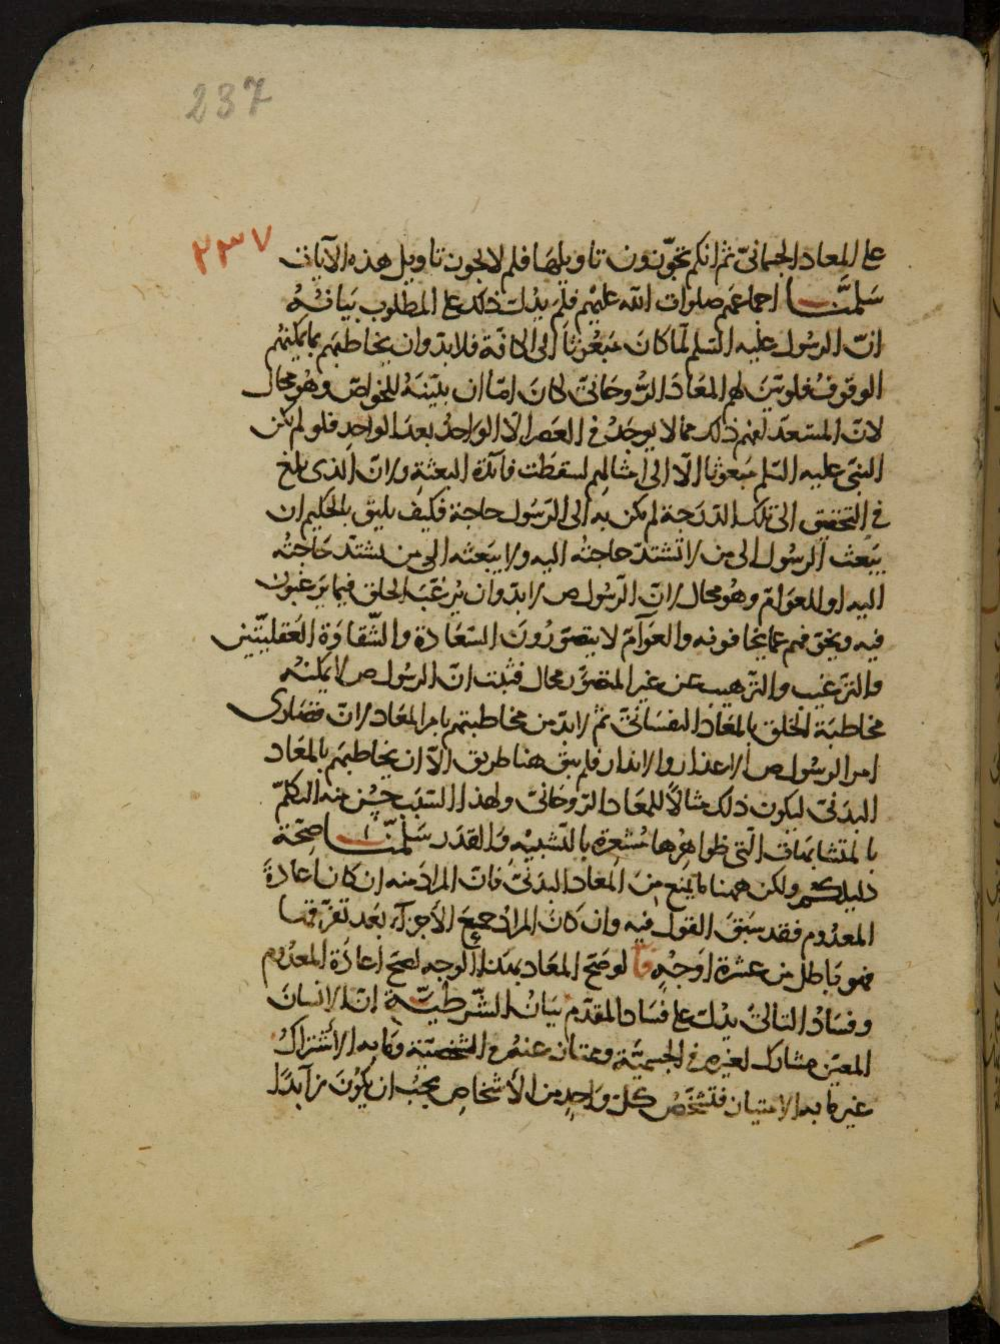 237
٢٣٧
على المعاد الجسمانيّ ثم انكم تجوّزون تاويلها فلم لا يجوز تاويل هذه الآيات
سَلَّمنا اجماعهم صلوات الله عليهم فلِمَ يدلّ ذلك على المطلوب بيانُهُ
انّ الرسُول عليه السّلم لمّا كانَ مَبعُوثًا الى الكافّة فلا بدّ وان يخاطبهم بما يمكنهُم
الوقوفُ فلو بيّنَ لهم المعَادَ الرُّوحَانىّ لكانَ امّا ان يبيّنهُ للخواصّ وهُو محال
لانّ المستعدّ لفهم ذلك مما لا يوجَدُ في العَصر الّا الواحِدُ بعدَ الواحِدِ فلو لم يكن
النبّى عليه السّلم مَبعوثًا الّا الى امثالهم لسقطت فآئدة البعثة ولانّ الذى بلغ
في التحقيق الى تلك الدّرَجة لم يكن به الى الرّسُول حاجة فكيفَ يليق بالحكيم ان
يبعث الرسُول الى من لا تشتدّ حاجته اليه ولا يبعثه الى من تشتدّ حَاجتُه
اليه او للعوَامّ وهُو محال لانّ الرّسُول ص لا بدّ وان يُرَغّبَ الخلق فيما يَرغبُون
فيه ويخوّفهم عما يخافونه والعَوَآمّ لا يتصوّرُونَ السّعَادة والشّقاوَة العَقليّتَين
والترّغيب والترّهيب عن غير المتصوَّر محال فثبت انّ الرسُول ص لا يمكنهُ
مخاطبَة الخلق بالمعَاد النفسَانىّ ثم لا بدّ من مخاطبتهم بامر المعَاد لانّ قصَارى
امر الرسُول ص الاعذار والانذار فلم يبق هنا طريق الّا ان يخاطبهَم بالمعَاد
البدنىّ ليكون ذلك مثالًا للمعَاد الرّوحَانىّ ولهذا السّبَب حَسُنَ منه التكلّم
بالمتشابهات الّتى ظواهرُها مُشعِرة بالتّشبيْه وَالقدَر سَلّمنا صِحّة
دليلكُم ولكن ههنا ما يمنع مِنَ المعَاد البدَنىّ فانّ المرادَ منه ان كانَ اعادَةَ
المعدُوم فقد سَبَقَ القول فيه وان كانَ المرادُ جمعَ الأجزآء بَعد تفرّقها
فهو بَاطل من عشرة اوجُهٍ آ لو صَحّ المعَاد بهذا الوجه لصَحّ اعادَة المعدُوم
وفسَادُ التالىّ يدُلّ على فسَاد المقدّم بيَانُ الشّرطيّة انّ الانسانَ
المعيّن مشارك لغيره فى الجسميّة وممتاز عنهُ فى الشخصيّة ومَا به الأشتراكُ
غير ما به الامتياز فتشخّصُ كلّ وَاحِدٍ من الأشخاصِ يجبُ ان يكُونَ زآئدًا